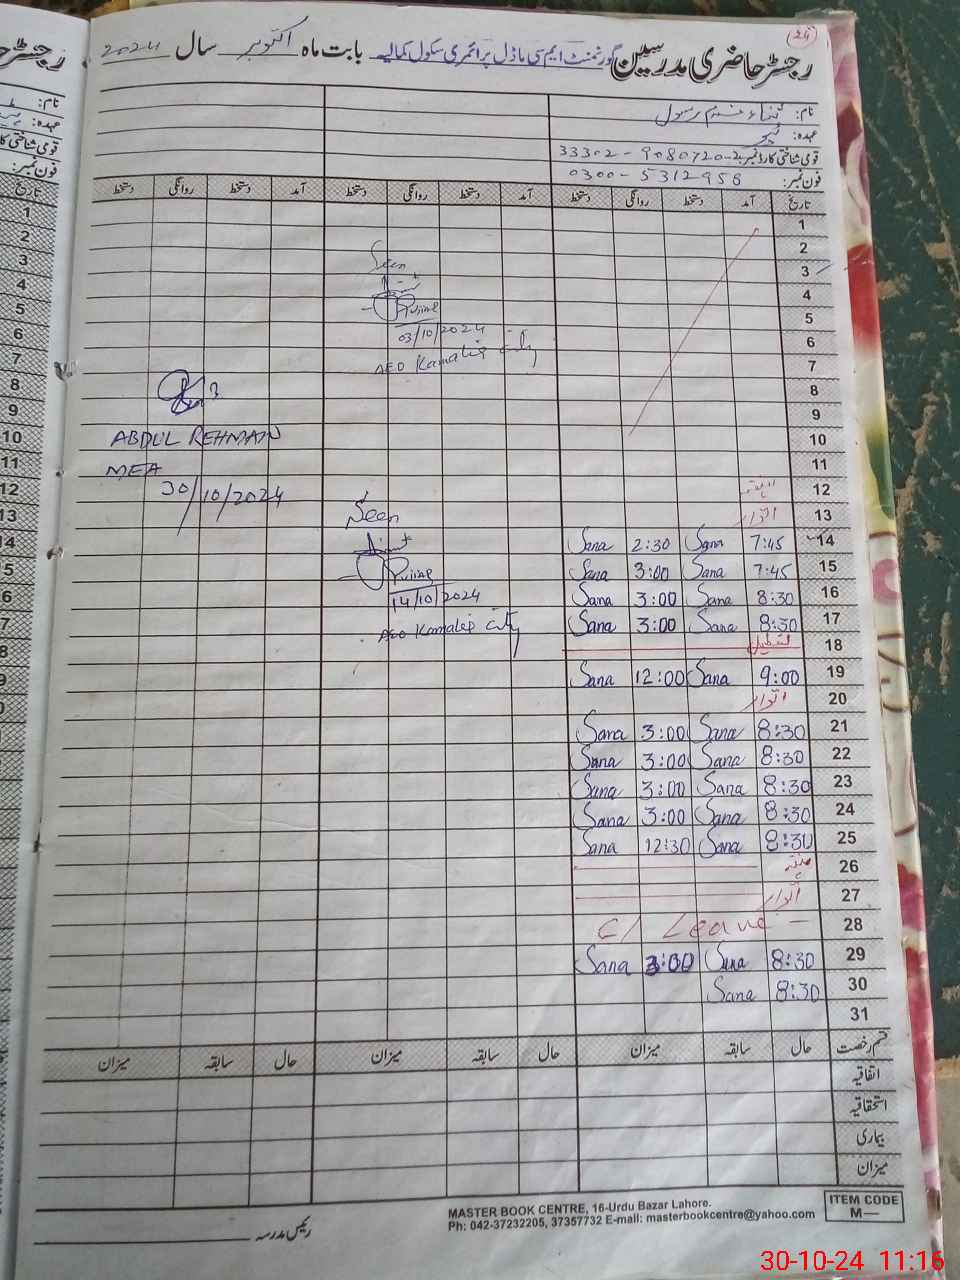 24
رجسٹر حاضری مدرسین گورنمنٹ ایم سی ماڈل پرائمری سکول کمالیہ بابت ماہ اکتوبر سال 2024
نام: رسول
عہدہ: ٹیچر
قومی شناختی کارڈ نمبر: 33302-9080720-2
فون نمبر: 0300-5312958
تاریخ آمد دستخط روانگی دستخط آمد دستخط روانگی دستخط آمد دستخط روانگی دستخط
1
2
3
4
5
6
7
8
9
10
11
12 ہفتہ
13 اتوار
14 7:45 Sana 2:30 Sana
15 7:45 Sana 3:00 Sana
16 8:30 Sana 3:00 Sana
17 8:30 Sana 3:00 Sana
18 تعطیل
19 9:00 Sana 12:00 Sana
20 اتوار
21 8:30 Sana 3:00 Sana
22 8:30 Sana 3:00 Sana
23 8:30 Sana 3:00 Sana
24 8:30 Sana 3:00 Sana
25 8:30 Sana 12:30 Sana
26 ہفتہ
27 اتوار
28 C/ Leave
29 8:30 Sana 3:00 Sana
30 8:30 Sana
31
Seen
03/10/2024
AEO Kamalia City
ABDUL REHMAN
MEA
30/10/2024
Seen
14/10/2024
AEO Kamalia City
قسم رخصت حال سابقہ میزان حال سابقہ میزان حال سابقہ میزان
اتفاقیہ
استحقاقیہ
بیماری
میزان
رئیس مدرسہ
MASTER BOOK CENTRE, 16-Urdu Bazar Lahore.
Ph: 042-37232205, 37357732 E-mail: masterbookcentre@yahoo.com
ITEM CODE
M—
30-10-24 11:16